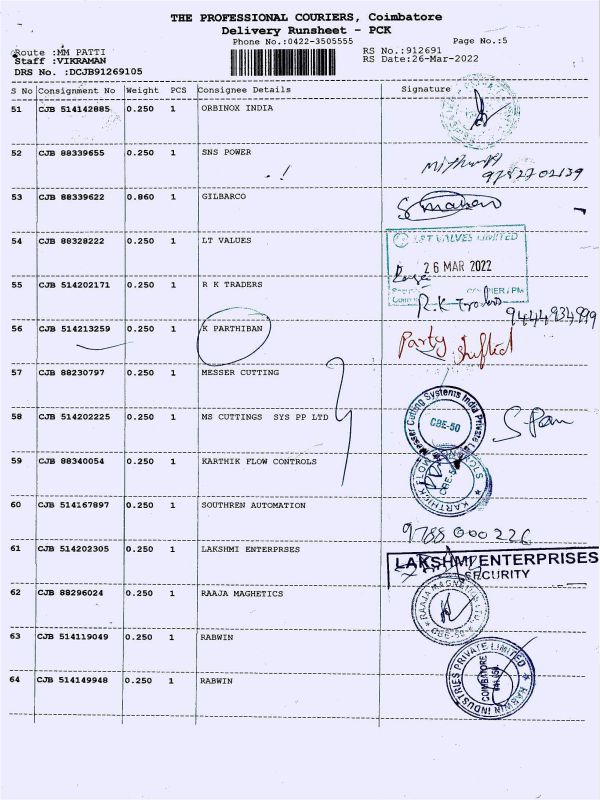 THE PROFESSIONAL COURIERS, Coimbatore
Delivery Runsheet - PCK
Phone No.:0422-3505555 Page No.:5
Route :MM PATTI RS No.:912691
Staff :VIKRAMAN RS Date:26-Mar-2022
DRS No. :DCJB91269105
S No Consignment No Weight PCS Consignee Details Signature
51 CJB 514142885 0.250 1 ORBINOX INDIA
52 CJB 88339655 0.250 1 SNS POWER
53 CJB 88339622 0.860 1 GILBARCO
54 CJB 88328222 0.250 1 LT VALUES
L&T VALVES LIMITED
26 MAR 2022
55 CJB 514202171 0.250 1 R K TRADERS
R.K Traders
9444934999
56 CJB 514213259 0.250 1 K PARTHIBAN
Party shifted
57 CJB 88230797 0.250 1 MESSER CUTTING
Messer Cutting Systems India Private
CBE-50
58 CJB 514202225 0.250 1 MS CUTTINGS SYS PP LTD
59 CJB 88340054 0.250 1 KARTHIK FLOW CONTROLS
KARTHICK FLOW CONTROLS
60 CJB 514167897 0.250 1 SOUTHREN AUTOMATION
9788 000 226
61 CJB 514202305 0.250 1 LAKSHMI ENTERPRSES
LAKSHMI ENTERPRISES
SECURITY
62 CJB 88296024 0.250 1 RAAJA MAGHETICS
63 CJB 514119049 0.250 1 RABWIN
64 CJB 514149948 0.250 1 RABWIN
RABWIN INDUSTRIES PRIVATE LIMITED
COIMBATORE